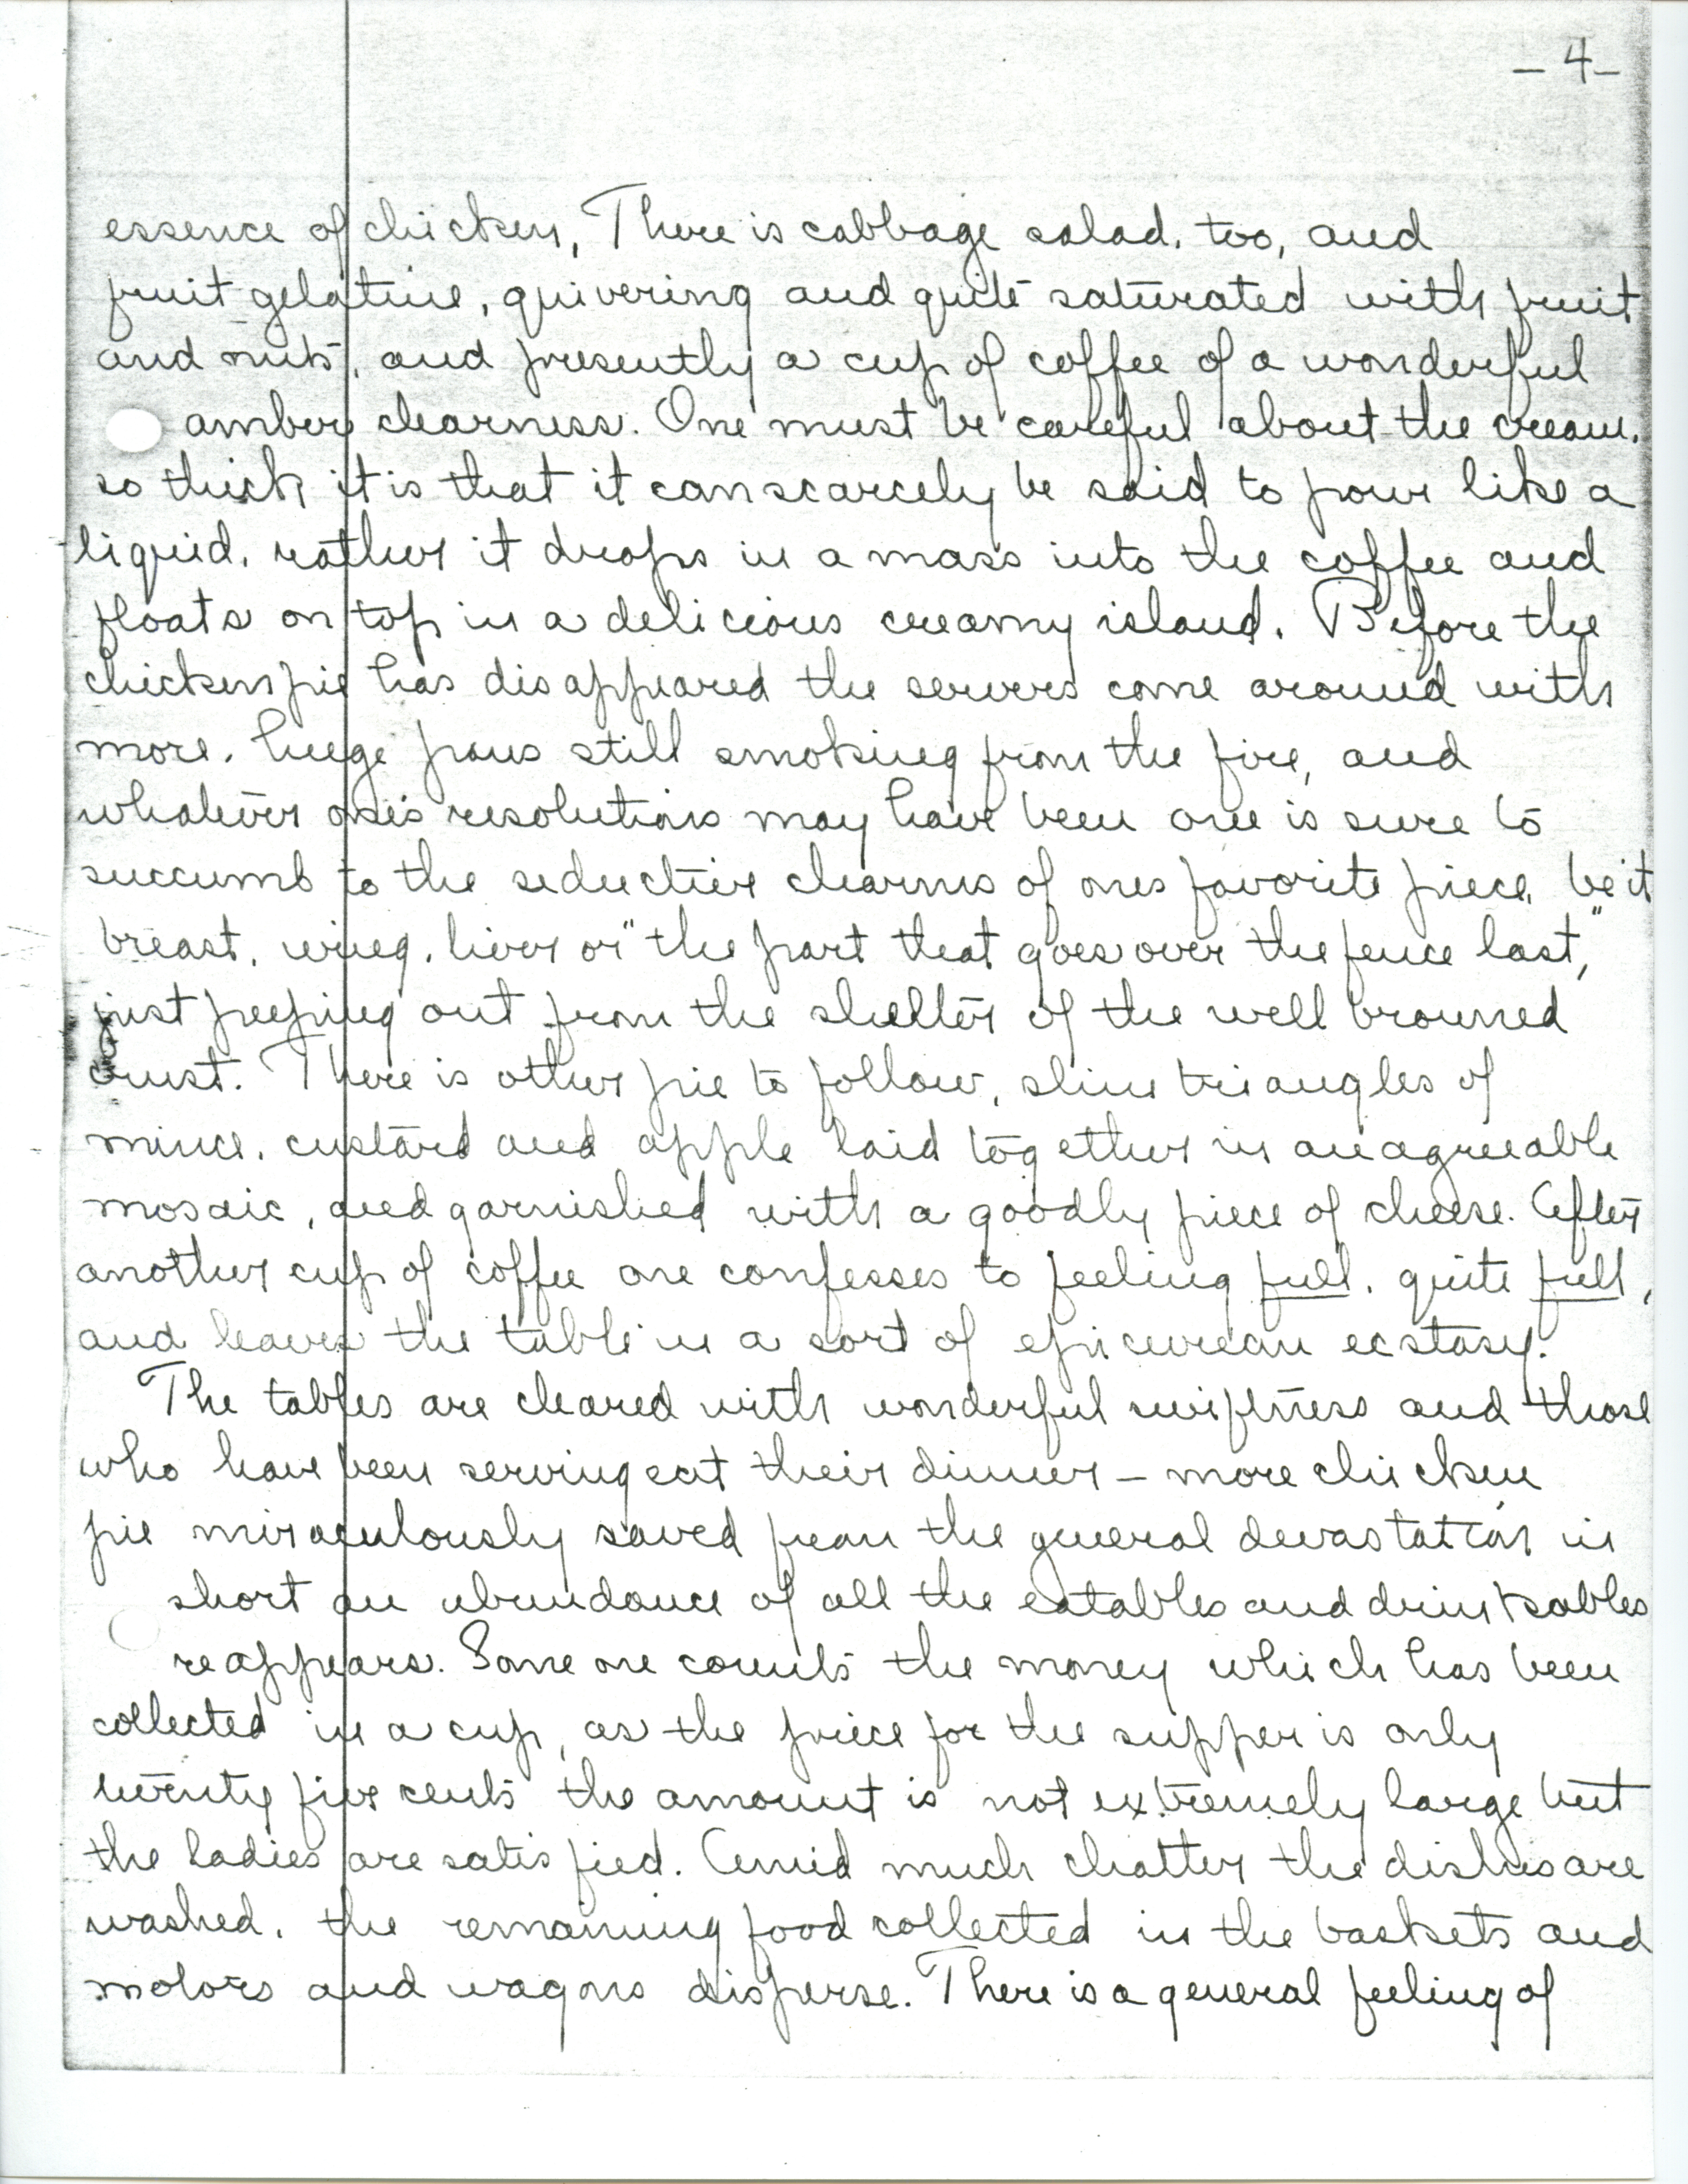 - 4 -
essence of chicken, There is cabbage salad, too, and
fruit gelatine, quivering and quite saturated with fruit
and nuts, and presently a cup of coffee of a wonderful
amber clearness. One must be careful about the cream,
so thick it is that it can scarcely be said to pour like a
liquid, rather it drops in a mass into the coffee and
floats on top in a delicious creamy island. Before the
chicken pie has disappeared the servers come around with
more, huge pans still smoking from the fire, and
whatever one's resolutions may have been one is sure to
succumb to the seductive charms of ones favorite piece, be it
breast, wing, liver or "the part that goes over the fence last,"
just peeping out from the shelter of the well browned
crust. There is other pie to follow, slim triangles of
mince, custard and apple laid together in an agreeable
mosaic, and garnished with a goodly piece of cheese. After
another cup of coffee one confesses to feeling full, quite full,
and leaves the table in a sort of epicurean ecstasy.
The tables are cleared with wonderful swiftness and those
who have been serving eat their dinner - more chicken
pie miraculously saved from the general devastation in
short an abundance of all the eatables and drinkables
reappears. Some one counts the money which has been
collected in a cup, as the price for the supper is only
twenty five cents the amount is not extremely large but
the ladies are satisfied. Amid much chatter the dishes are
washed, the remaining food collected in the baskets and
motors and wagons disperse. There is a general feeling of